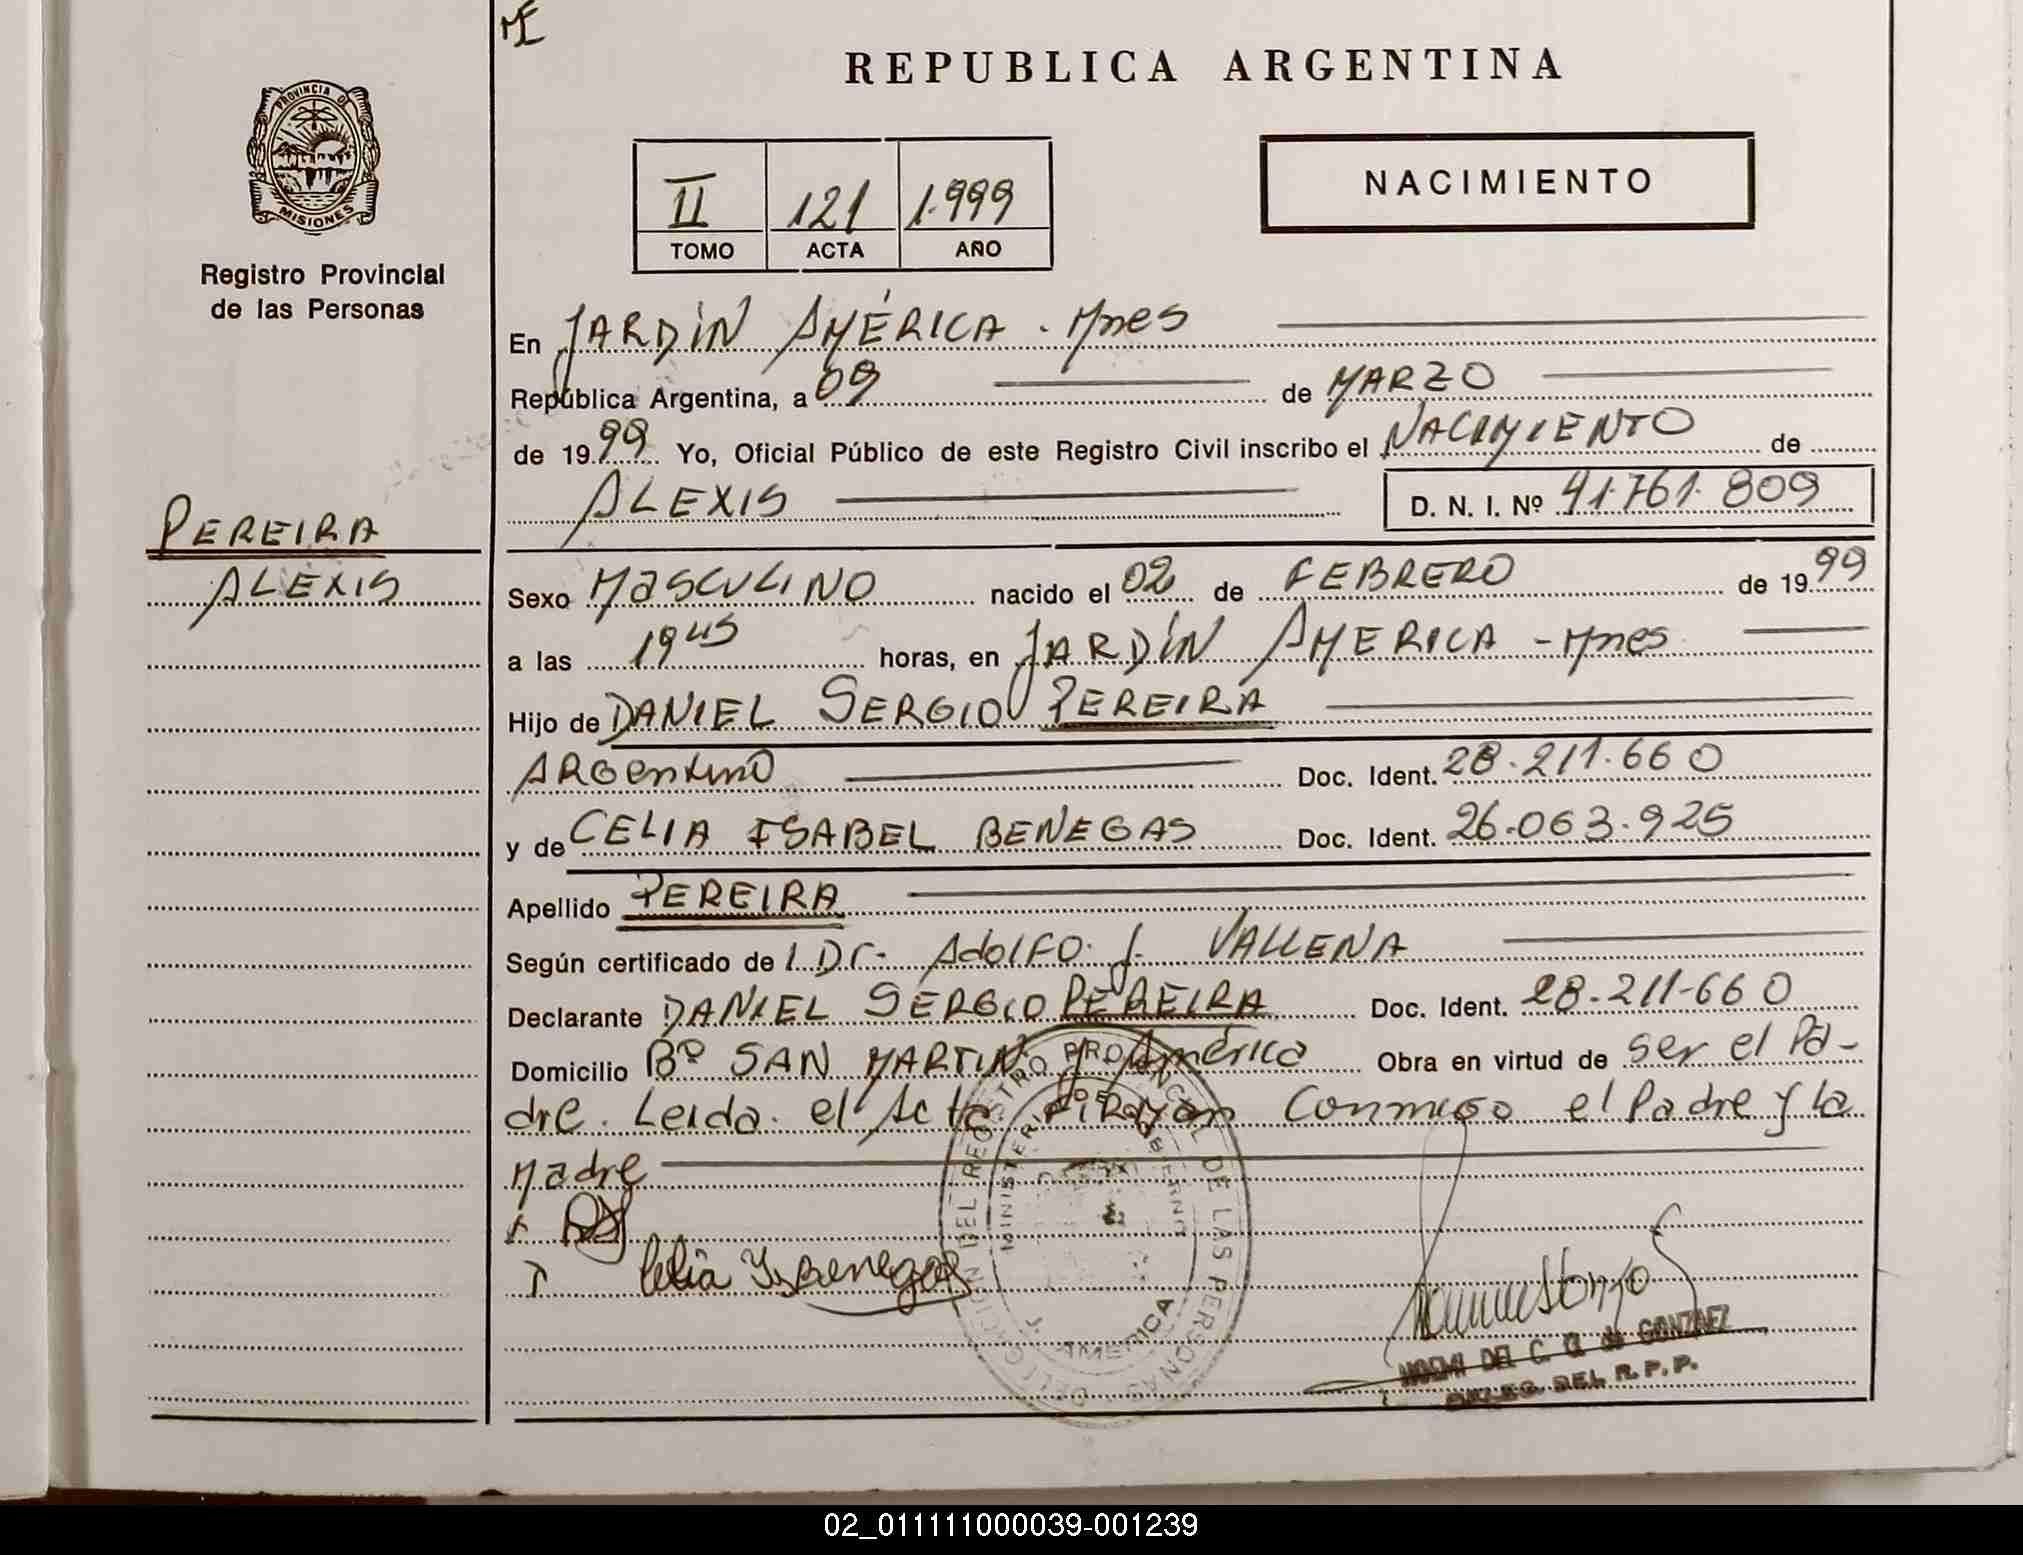 ME
REPUBLICA ARGENTINA
PROVINCIA DE
MISIONES
Registro Provincial
de las Personas
II 121 1.999
TOMO ACTA AÑO
NACIMIENTO
En JARDÍN AMÉRICA - Mnes
República Argentina, a 09 de MARZO
de 1999 Yo, Oficial Público de este Registro Civil inscribo el NACIMIENTO de
ALEXIS D. N. I. Nº 41.761.809
PEREIRA
ALEXIS
Sexo MASCULINO nacido el 02 de FEBRERO de 1999
a las 19 45 horas, en JARDÍN AMERICA - Mnes
Hijo de DANIEL SERGIO PEREIRA
ARGentino Doc. Ident. 28.211.660
y de CELIA ISABEL BENEGAS Doc. Ident. 26.063.925
Apellido PEREIRA
Según certificado de l Dr. Adolfo J. VALLENA
Declarante DANIEL SERGIO PEREIRA Doc. Ident. 28.211-660
Domicilio Bº SAN MARTIN J América Obra en virtud de ser el Pa-
dre. Leida el Acta firman Conmigo el Padre y la
Madre
Celia Ysabenegas
DEL REGISTRO PROVINCIAL DE LAS PERSONAS
MINISTERIO DE GOBIERNO
AMERICA
NOEMI DEL C. G. de GONZALEZ
DELEG. DEL R. P. P.
02_011111000039-001239